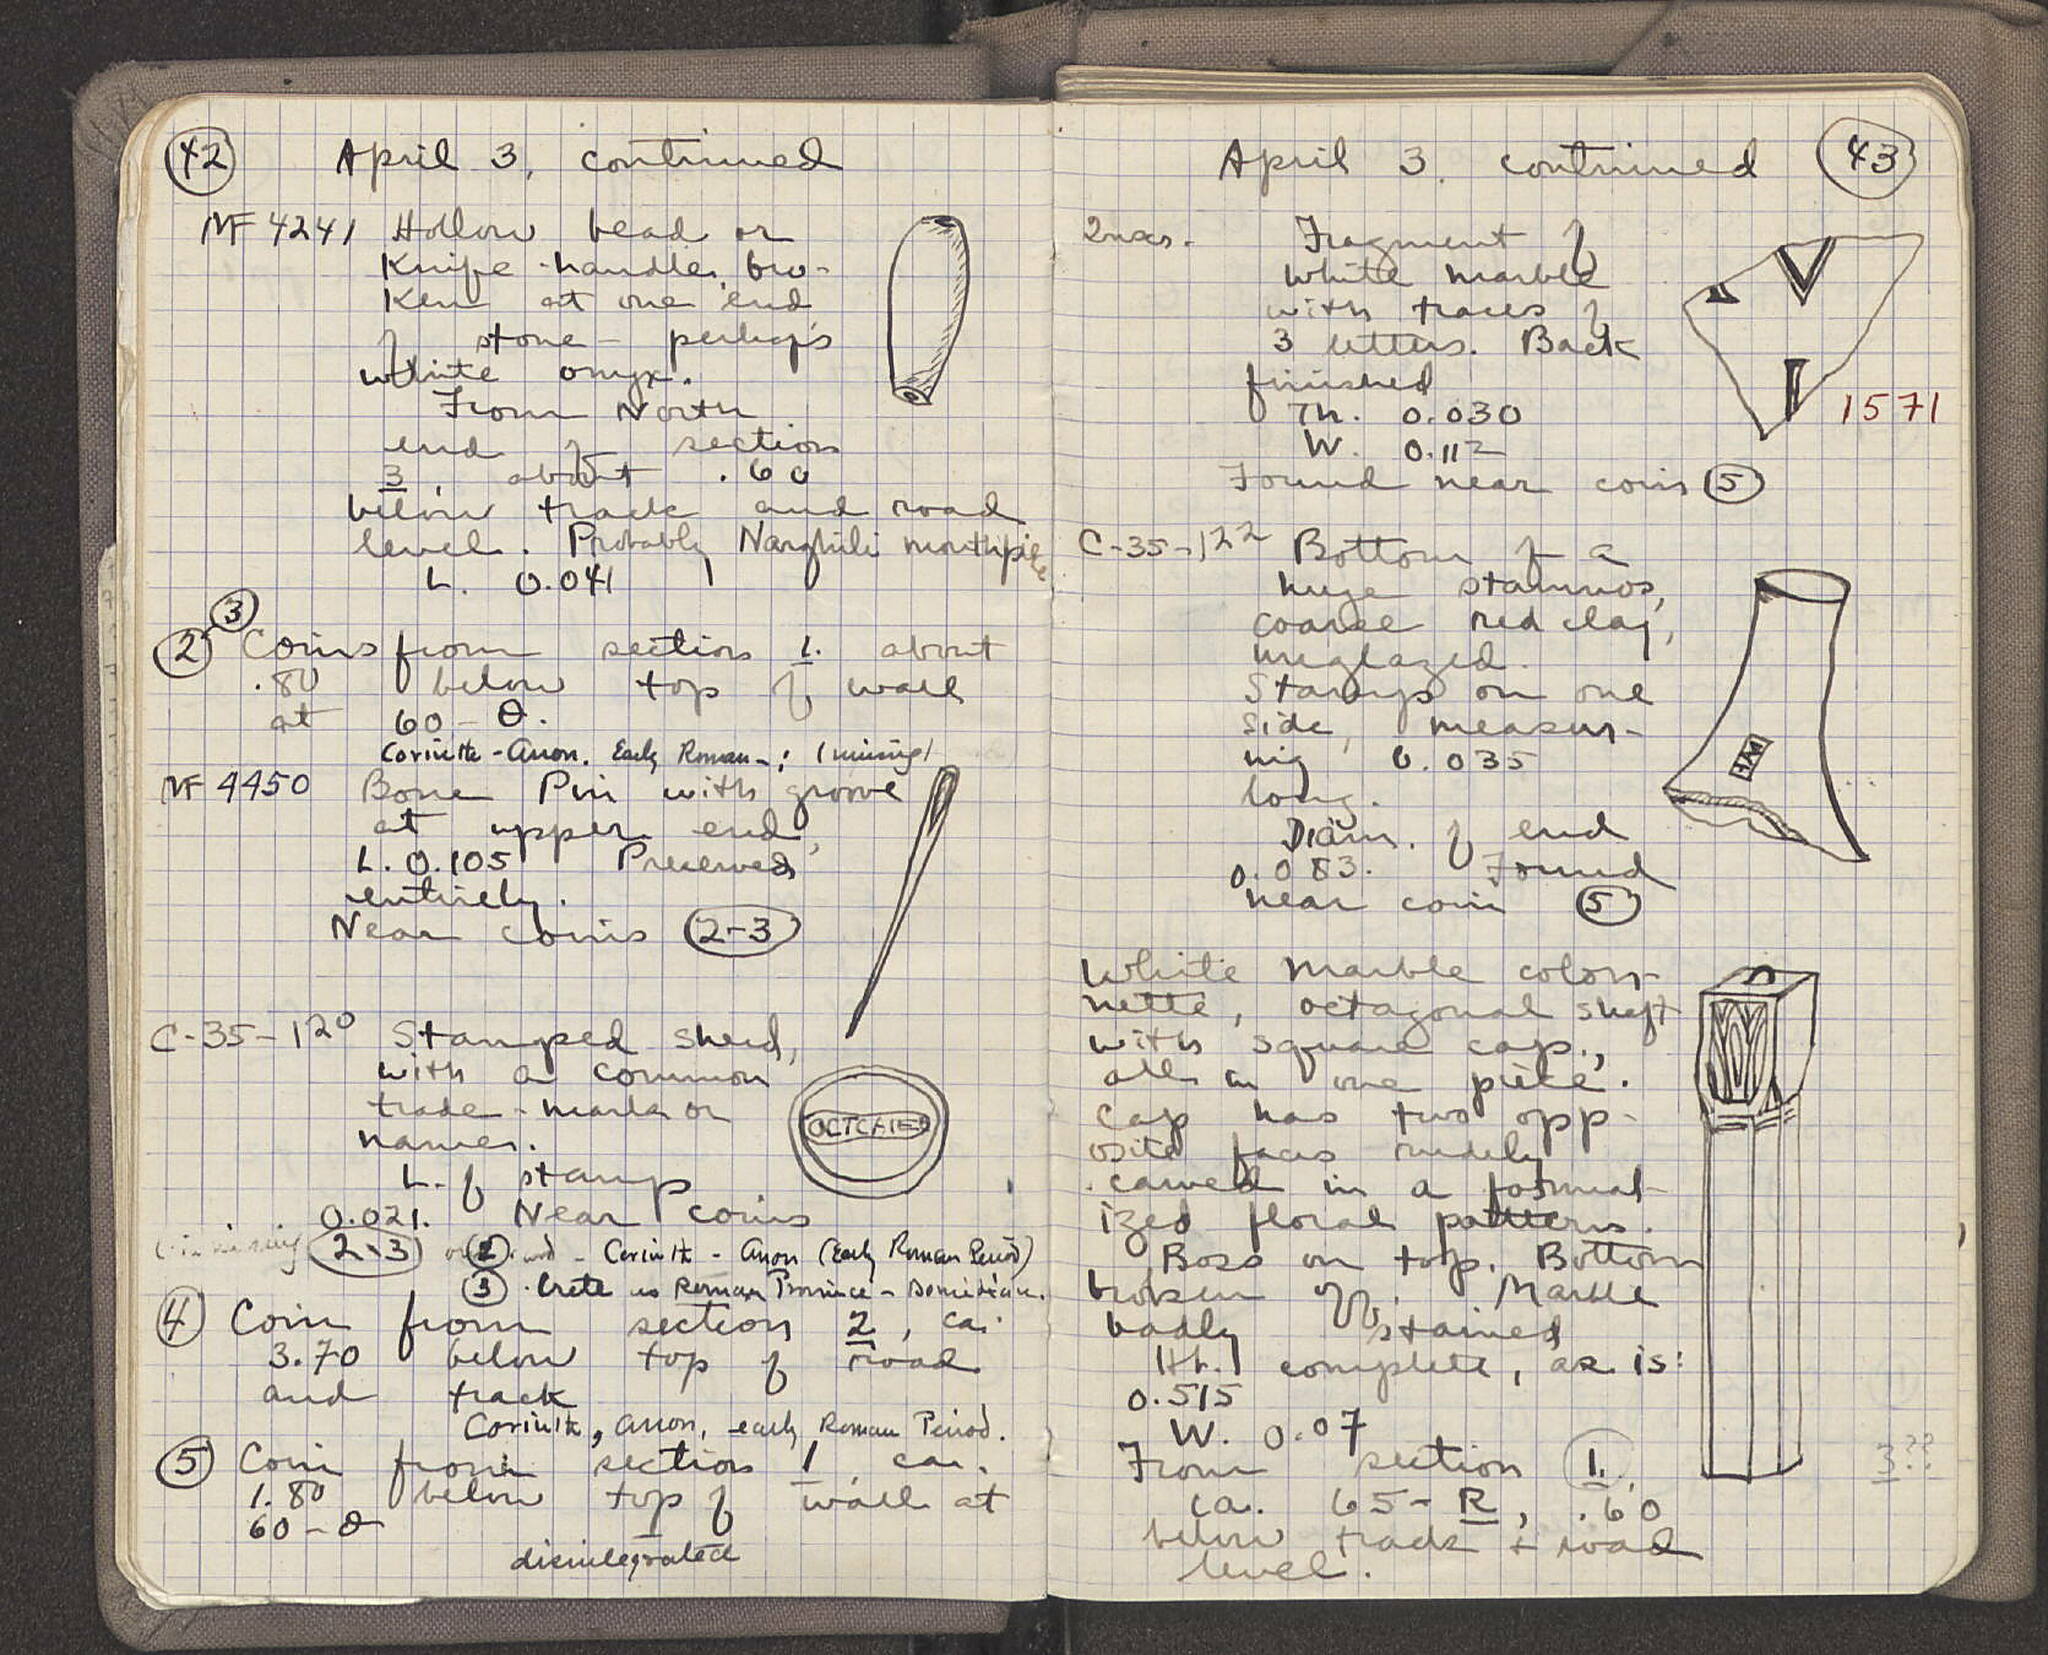 42 April 3, continued
MF 4241 Hollow bead or
Knife-handle, bro-
ken at one end
of stone - perhaps
white onyx.
From North
end of section
3, about .60
below track and road
level. Probably Narghili mouthpiece
L. 0.041
2-3 Coins from section 1. about
.80 below top of wall
at 60-Θ.
Corinth - Anon. Early Roman -; (missing)
MF 4450 Bone Pin with groove
at upper end,
L. 0.105 Preserved
entirely.
Near coins 2-3
C-35-120 Stamped sherd,
with a common
trade-mark or
name.
OCTCAIE
L. of stamp
0.021. Near coins
2-3
2 - Corinth - Anon (Early Roman Period)
3. Crete as Roman Province - Domitian.
4 Coin from section 2, ca.
3.70 below top of road
and track
Corinth, Anon, early Roman Period.
5 Coin from section 1, ca.
1.80 below top of wall at
60-Θ
disintegrated
April 3, continued 43
Fragment of
white marble
with traces of
3 letters. Back
finished
Th. 0.030
W. 0.112
1571
Found near coin 5
C-35-122 Bottom of a
huge stamnos,
coarse red clay,
unglazed.
Stamp on one
side, measur-
ing 0.035
long.
Diam. of end
0.083. Found
near coin 5
White marble colon-
nette, octagonal shaft
with square cap.,
all in one piece.
Cap has two opp-
osite faces rudely
carved in a formal-
ized floral pattern.
Boss on top. Bottom
broken off. Marble
badly stained
Ht. complete, as is:
0.515
W. 0.07
From section 1.,
3??
ca. 65-R, .60
below track + road
level.